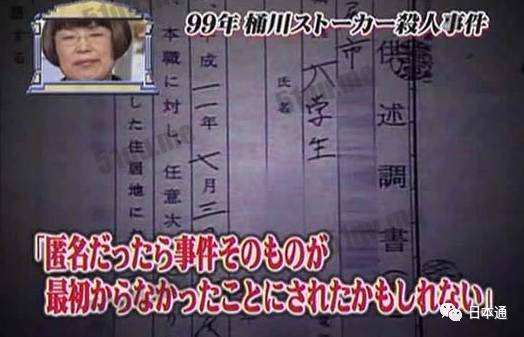 99年 桶川ストーカー殺人事件
供述調書
氏名
大学生
平成一一年七月三
本職に対し、任意次
した住居地に
「匿名だったら事件そのものが
最初からなかったことにされたかもしれない」
日本通